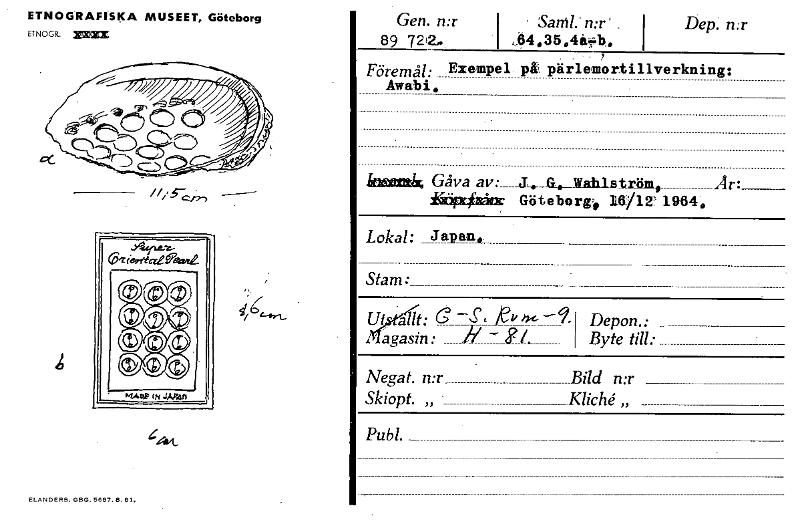 ETNOGRAFISKA MUSEET, Göteborg
ETNOGR.
a
11,5 cm
Super
Oriental Pearl
MADE IN JAPAN
b
6 cm
ELANDERS. GBG. 5687. 8. 61.
Gen. n:r Saml. n:r Dep. n:r
89 722. 64.35.4a-b.
Föremål: Exempel på pärlemortillverkning:
Awabi.
Gåva av: J. G. Wahlström, År:
Göteborg, 16/12 1964.
Lokal: Japan.
Stam:
Utställt: G-S. Rum-9. Depon.:
Magasin: H - 81. Byte till:
Negat. n:r Bild n:r
Skiopt. „ Kliché „
Publ.